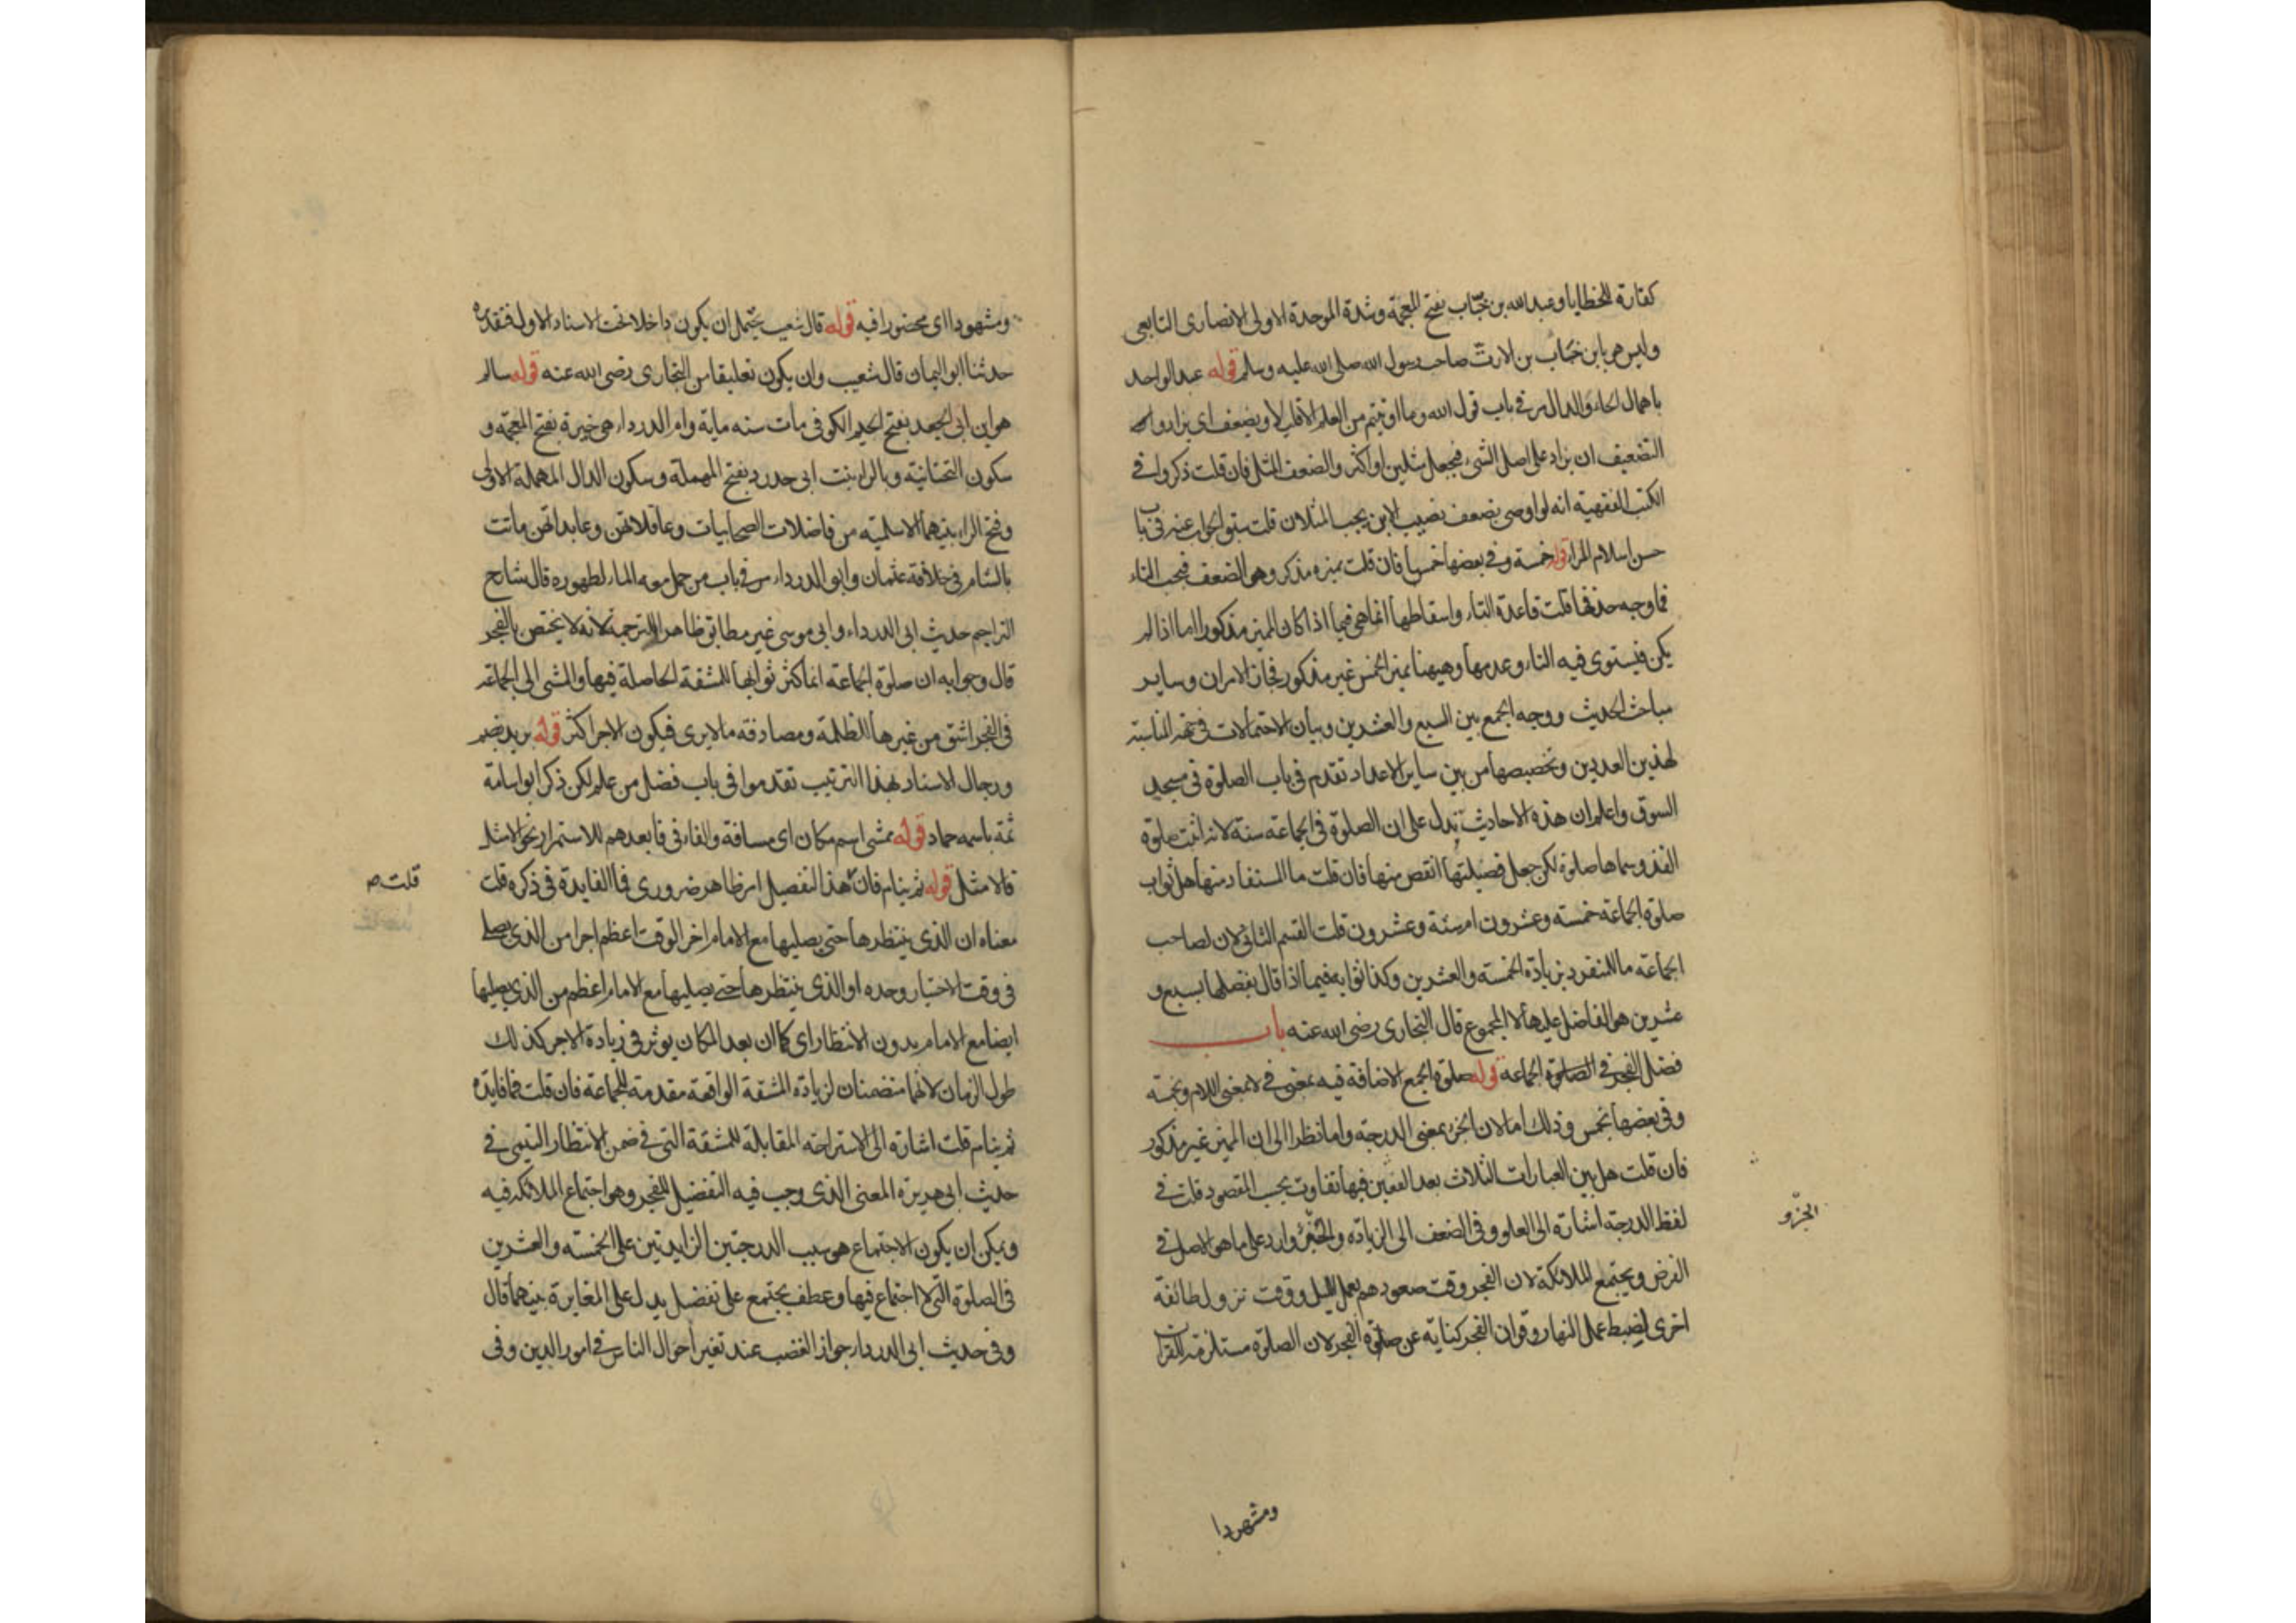 كفارة للخطايا وعبد الله بن خبّاب بفتح المعجمة وشدة الموحدة الاولى الانصارى التابعى
وليس هو بابن خباب بن الارت صاحب رسول الله صلى الله عليه وسلم قوله عبد الواحد
باهمال الحاء والدال مر فى باب قول الله وما اوتيتم من العلم الا قليلا ويضعف اى يزاد و
التضعيف ان يزاد على اصل الشىء فيجعل مثلين او اكثر والضعف المثل فان قلت ذكروا فى
الكتب الفقهية انه لو اوصى بضعف نصيب الابن يجب المثلان قلت سبق الجواب عنه فى باب
حسن اسلام المرء قوله خمسة وفى بعضها خمسا فان قلت مميزه مذكر وهو الضعف فيجب التاء
فما وجه حذفها قلت قاعدة التاء واسقاطها انما هى فيما اذا كان المميز مذكورا اما اذا لم
يكن فيستوى فيه التاء وعدمها وههنا مميز الخمس غير مذكور فجاز الامران وساير
مباحث الحديث ووجه الجمع بين السبع والعشرين وبيان الاحتمالات فى المناسبة
لهذين العددين وتخصيصها من بين ساير الاعداد تقدم فى باب الصلوة فى مسجد
السوق واعلم ان هذه الاحاديث تدل على ان الصلوة فى الجماعة سنة لانه اثبت صلوة
الفذ وسماها صلوة لكن جعل فضيلتها انقص منها فان قلت ما المستفاد منها هل ثواب
صلوة الجماعة خمسة وعشرون ام ستة وعشرون قلت القسم الثانى لان لصاحب
الجماعة ما للمنفرد بزيادة الخمسة والعشرين وكذا ثوابه فيما اذا قال يفضلها بسبع و
عشرين هو الفاضل عليها لا المجموع قال البخارى رضى الله عنه باب
فضل الفجر فى الصلوة الجماعة قوله صلوة الجمع الاضافة فيه بمعنى فى لا بمعنى اللام وبخمسة
وفى بعضها بخمس وذلك اما لان الجزء بمعنى الدرجة واما نظرا الى ان المميز غير مذكور
فان قلت هل بين العبارات الثلاث بعد العفين فيها تفاوت بحسب المقصود قلت فى
لفظ الدرجة اشارة الى العلو وفى الضعف الى الزيادة والجزء وارد على ما هو الاصل فى
الجزو
الفرض ويجتمع الملائكة لان الفجر وقت صعودهم بعمل الليل ووقت نزول طائفة
اخرى لضبط عمل النهار وقران الفجر كناية عن صلوة الفجر لان الصلوة مستلزمة للقران
ومشهودا
ومشهودا اى محضورا فيه قوله قال شعيب يحتمل ان يكون داخلا تحت الاسناد الاول فتقديره
حدثنا ابو اليمان قال شعيب وان يكون تعليقا من البخارى رضى الله عنه قوله سالم
هو ابن ابى الجعد بفتح الجيم الكوفى مات سنه ماية وام الدرداء هى خيرة بفتح المعجمة و
سكون التحتانية وبالراء بنت ابى حدرد بفتح المهملة وسكون الدال المهملة الاولى
وفتح الراء بينهما الاسلمية من فاضلات الصحابيات وعاقلاتهن وعابداتهن ماتت
بالشام فى خلافة عثمان وابو الدرداء مر فى باب من حمل معه الماء لطهوره قال شارح
التراجم حديث ابى الدرداء وابى موسى غير مطابق ظاهرا للترجمة لانه لا يختص بالفجر
قال وجوابه ان صلوة الجماعة انما كثر ثوابها للمشقة الحاصلة فيها والمشى الى الجماعة
فى الفجر اشق من غيرها للظلمة ومصادفة ما لا يرى فيكون الاجر اكثر قوله بريد بضم
ورجال الاسناد بهذا الترتيب تقدموا فى باب فضل من علم لكن ذكر ابو اسامة
ثمة باسمه حماد قوله ممشى اسم مكان اى مسافة والفاء فى فابعدهم للاستمرار نحو الامثل
فالامثل قوله ثم ينام فان هذا التفصيل امر ظاهر ضرورى فما الفايدة فى ذكره قلت
قلت ص
معناه ان الذى ينتظرها حتى يصليها مع الامام اخر الوقت اعظم اجرا من الذى يصلى
فى وقت الاختيار وحده او الذى ينتظرها حتى يصليها مع الامام اعظم من الذى يصليها
ايضا مع الامام بدون الانتظار اى كما ان بعد المكان يوثر فى زيادة الاجر كذلك
طول الزمان لانهما متضمنان لزيادة المشقة الواقعة مقدمة للجماعة فان قلت فما فايدة
ثم ينام قلت اشارة الى الاستراحة المقابلة للمشقة التى فى ضمن الانتظار التيمى فى
حديث ابى هريرة المعنى الذى وجب فيه التفضيل للفجر وهو اجتماع الملائكة فيه
ويمكن ان يكون الاجتماع هو سبب الدرجتين الزايدتين على الخمسة والعشرين
فى الصلوة التى لا اجتماع فيها وعطف يجتمع على تفضل يدل على المغايرة بينهما قال
وفى حديث ابى الدرداء جواز الغضب عند تغير احوال الناس فى امور الدين وفى